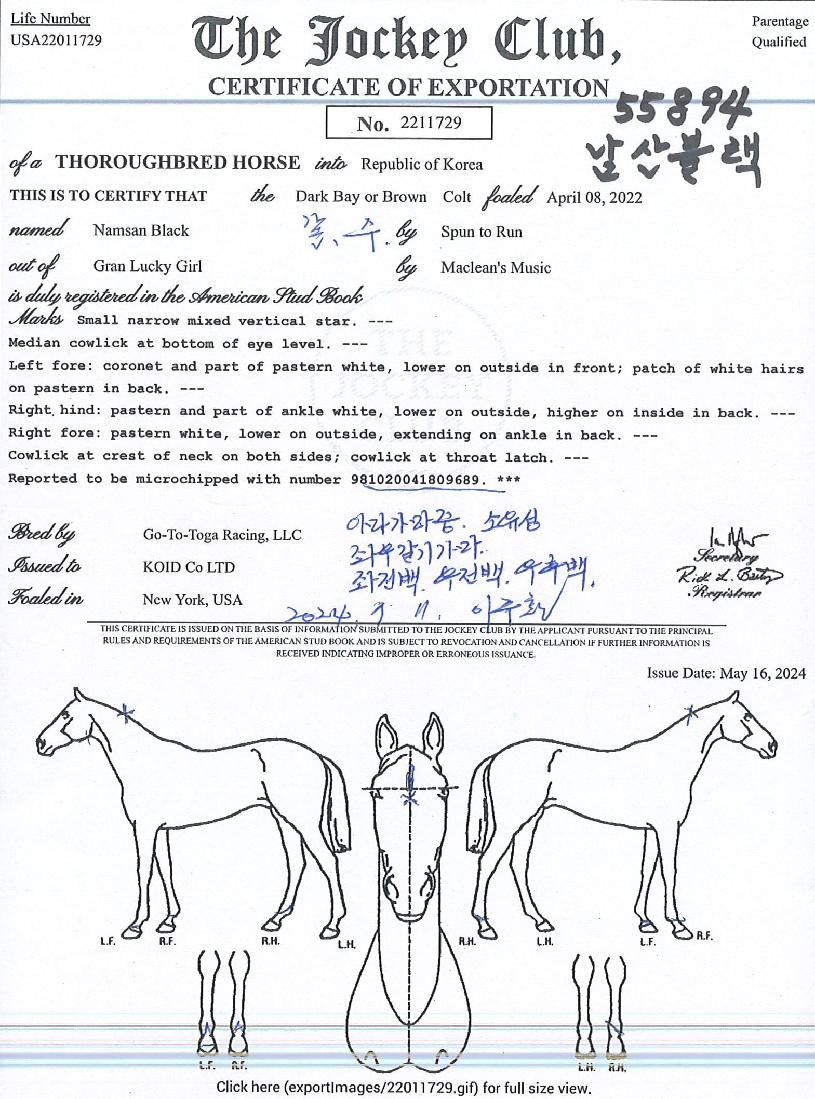 Life Number
USA22011729
The Jockey Club,
Parentage
Qualified
CERTIFICATE OF EXPORTATION
55894
No. 2211729
남산블랙
of a THOROUGHBRED HORSE into Republic of Korea
THIS IS TO CERTIFY THAT the Dark Bay or Brown Colt foaled April 08, 2022
named Namsan Black by Spun to Run
out of Gran Lucky Girl by Maclean's Music
is duly registered in the American Stud Book
Marks Small narrow mixed vertical star. ---
Median cowlick at bottom of eye level. ---
Left fore: coronet and part of pastern white, lower on outside in front; patch of white hairs
on pastern in back. ---
Right hind: pastern and part of ankle white, lower on outside, higher on inside in back. ---
Right fore: pastern white, lower on outside, extending on ankle in back. ---
Cowlick at crest of neck on both sides; cowlick at throat latch. ---
Reported to be microchipped with number 981020041809689. ***
THE
JOCKEY
CLUB
Bred by Go-To-Toga Racing, LLC
Issued to KOID Co LTD
Foaled in New York, USA
소유성
좌우갈기가마.
좌전백. 우전백. 우후백.
Secretary
Registrar
THIS CERTIFICATE IS ISSUED ON THE BASIS OF INFORMATION SUBMITTED TO THE JOCKEY CLUB BY THE APPLICANT PURSUANT TO THE PRINCIPAL
RULES AND REQUIREMENTS OF THE AMERICAN STUD BOOK AND IS SUBJECT TO REVOCATION AND CANCELLATION IF FURTHER INFORMATION IS
RECEIVED INDICATING IMPROPER OR ERRONEOUS ISSUANCE.
Issue Date: May 16, 2024
L.F. R.F. R.H. L.H. R.H. L.H. L.F. R.F.
L.F. R.F. L.H. R.H.
Click here (exportImages/22011729.gif) for full size view.